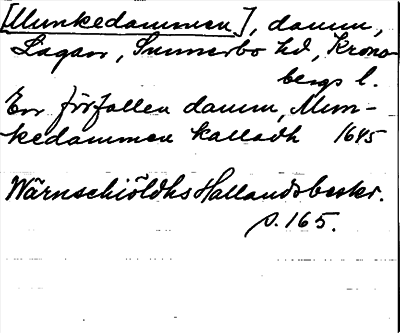 [Munkedammen], damm,
Lagan, Sunnerbo hd, Krono-
bergs l.
Een förfallen damm, Mun-
kedammen kalladh 1645
Wärnschiöldhs Hallandsbeskr.
s. 165.